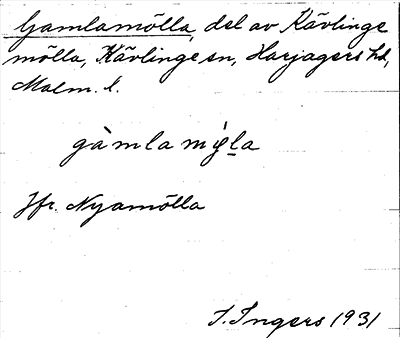 Gamlamölla, del av Kävlinge
mölla, Kävlinge sn, Harjagers hd,
Malm. l.
gàmla mǿ̀la
Jfr. Nyamölla
I. Ingers 1931